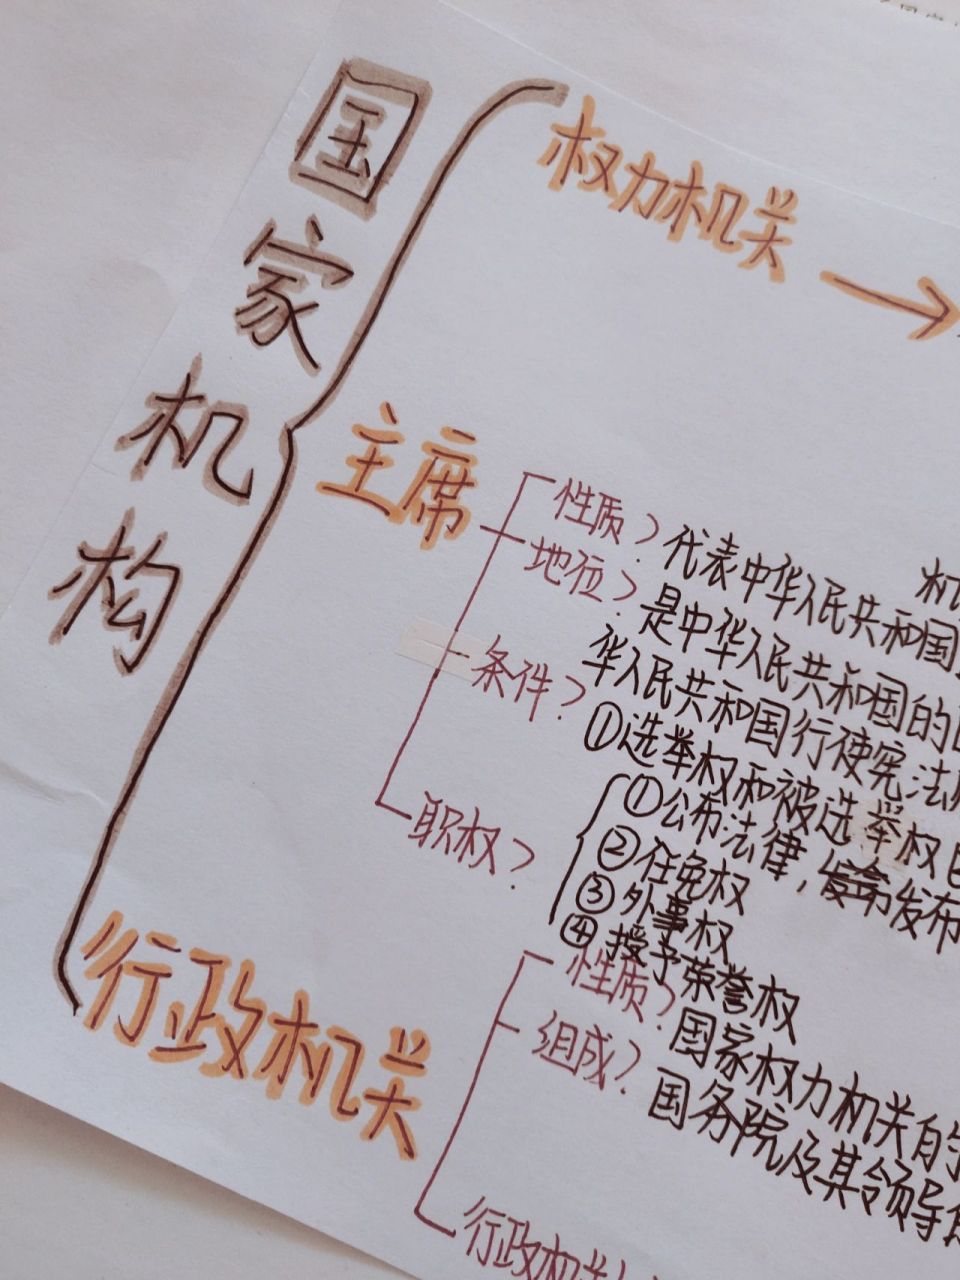 国家机构
权力机关
主席
性质?
地位?代表中华人民共和国
条件?是中华人民共和国的
华人民共和国行使宪法
①选举权和被选举权
职权?
①公布法律,发布
②任免权
③外事权
④授予荣誉权
行政机关
性质?国家权力机关
组成?国务院及其领导
行政机关